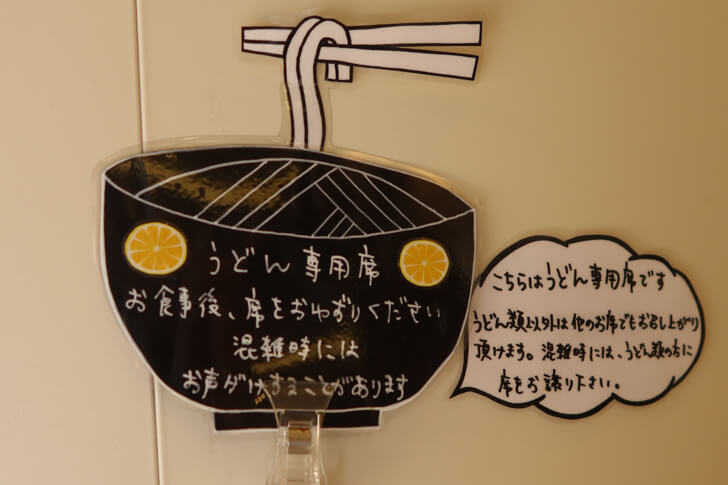 うどん専用席
お食事後、席をおゆずりください
混雑時には
お声がけすることがあります
こちらはうどん専用席です
うどん類以外は他のお席でもお召し上がり
頂けます。混雑時には、うどん類の方に
席をお譲り下さい。